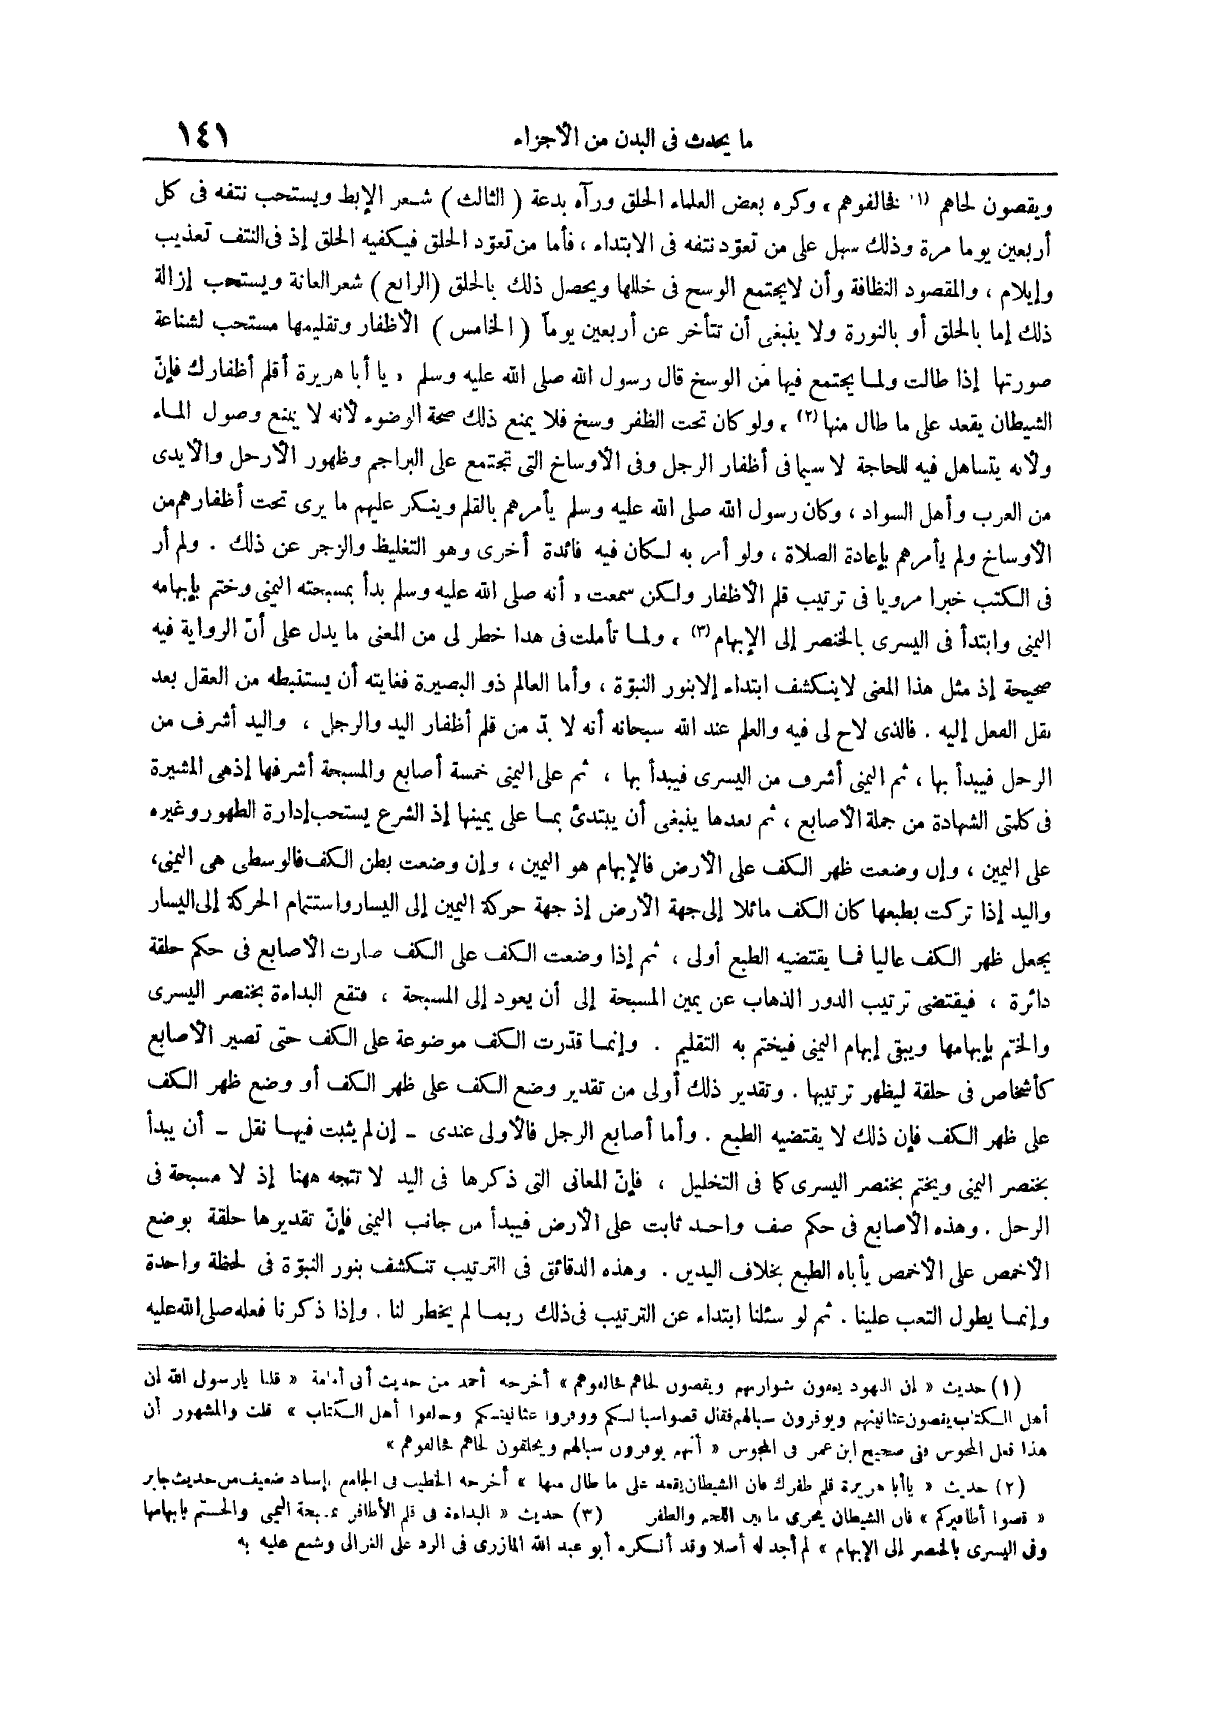 ما يحدث فى البدن من الأجزاء ١٤١
ويقصون لحاهم (١) فخالفوهم » وكره بعض العلماء الحلق ورآه بدعة ( الثالث ) شعر الإبط ويستحب نتفه فى كل
أربعين يوما مرة وذلك سهل على من تعوّد نتفه فى الابتداء ، فأما من تعوّد الحلق فيكفيه الحلق إذ فى النتف تعذيب
وإيلام ، والمقصود النظافة وأن لايجتمع الوسخ فى خللها ويحصل ذلك بالحلق (الرابع) شعر العانة ويستحب إزالة
ذلك إما بالحلق أو بالنورة ولا ينبغى أن تتأخر عن أربعين يوماً ( الخامس ) الأظفار وتقليمها مستحب لشناعة
صورتها إذا طالت ولما يجتمع فيها من الوسخ قال رسول الله صلى الله عليه وسلم « يا أبا هريرة أقلم أظفارك فإنّ
الشيطان يقعد على ما طال منها (٢) » ولو كان تحت الظفر وسخ فلا يمنع ذلك صحة الوضوء لأنه لا يمنع وصول الماء
ولأنه يتساهل فيه للحاجة لا سيما فى أظفار الرجل وفى الأوساخ التى تجتمع على البراجم وظهور الأرجل والأيدى
من العرب وأهل السواد ، وكان رسول الله صلى الله عليه وسلم يأمرهم بالقلم وينكر عليهم ما يرى تحت أظفارهم من
الأوساخ ولم يأمرهم بإعادة الصلاة ، ولو أمر به لكان فيه فائدة أخرى وهو التغليظ والزجر عن ذلك . ولم أر
فى الكتب خبرا مرويا فى ترتيب قلم الأظفار ولكن سمعت « أنه صلى الله عليه وسلم بدأ بمسبحته اليمنى وختم بإبهامه
اليمنى وابتدأ فى اليسرى بالخنصر إلى الإبهام (٣) » ولما تأملت فى هذا خطر لى من المعنى ما يدل على أنّ الرواية فيه
صحيحة إذ مثل هذا المعنى لاينكشف ابتداء إلابنور النبوّة ، وأما العالم ذو البصيرة فغايته أن يستنبطه من العقل بعد
نقل الفعل إليه . فالذى لاح لى فيه والعلم عند الله سبحانه أنه لا بدّ من قلم أظفار اليد والرجل ، واليد أشرف من
الرجل فيبدأ بها ، ثم اليمنى أشرف من اليسرى فيبدأ بها ، ثم على اليمنى خمسة أصابع والمسبحة أشرفها إذ هى المشيرة
فى كلمتى الشهادة من جملة الأصابع ، ثم بعدها ينبغى أن يبتدئ بما على يمينها إذ الشرع يستحب إدارة الطهور وغيره
على اليمين ، وإن وضعت ظهر الكف على الأرض فالإبهام هو اليمين ، وإن وضعت بطن الكف فالوسطى هى اليمنى،
واليد إذا تركت بطبعها كان الكف مائلا إلى جهة الأرض إذ جهة حركة اليمين إلى اليسار واستتمام الحركة إلى اليسار
يجعل ظهر الكف عاليا فما يقتضيه الطبع أولى ، ثم إذا وضعت الكف على الكف صارت الأصابع فى حكم حلقة
دائرة ، فيقتضى ترتيب الدور الذهاب عن يمين المسبحة إلى أن يعود إلى المسبحة ، فتقع البداءة بخنصر اليسرى
والختم بإبهامها ويبقى إبهام اليمنى فيختم به التقليم . وإنما قدّرت الكف موضوعة على الكف حتى تصير الأصابع
كأشخاص فى حلقة ليظهر ترتيبها . وتقدير ذلك أولى من تقدير وضع الكف على ظهر الكف أو وضع ظهر الكف
على ظهر الكف فإن ذلك لا يقتضيه الطبع . وأما أصابع الرجل فالأولى عندى – إن لم يثبت فيها نقل – أن يبدأ
بخنصر اليمنى ويختم بخنصر اليسرى كما فى التخليل ، فإنّ المعانى التى ذكرها فى اليد لا تتجه ههنا إذ لا مسبحة فى
الرجل . وهذه الأصابع فى حكم صف واحد ثابت على الأرض فيبدأ من جانب اليمنى فإنّ تقديرها حلقة بوضع
الأخمص على الأخمص يأباه الطبع بخلاف اليدين . وهذه الدقائق فى الترتيب تنكشف بنور النبوّة فى لحظة واحدة
وإنما يطول التعب علينا . ثم لو سئلنا ابتداء عن الترتيب فى ذلك ربما لم يخطر لنا . وإذا ذكرنا فعله صلى الله عليه
(١) حديث « إن اليهود يعفون شواربهم ويقصون لحاهم فخالفوهم » أخرجه أحمد من حديث أبى أمامة « قلنا يارسول الله إن
أهل الكتاب يقصون عثانينهم ويوفرون سبالهم فقال قصوا سبالكم ووفروا عثانينكم وخالفوا أهل الكتاب » قلت والمشهور أن
هذا فعل المجوس ففى صحيح ابن عمر فى المجوس « أنهم يوفرون سبالهم ويحلقون لحاهم فخالفوهم »
(٢) حديث « ياأبا هريرة قلم ظفرك فإن الشيطان يقعد على ما طال منها » أخرجه الخطيب فى الجامع بإسناد ضعيف من حديث جابر
« قصوا أظافيركم » فان الشيطان يجرى ما بين اللحم والظفر (٣) حديث « البداءة فى قلم الأظافر بمسبحة اليمنى والختم بإبهامها
وفى اليسرى بالخنصر إلى الإبهام » لم أجد له أصلا وقد أنكره أبو عبد الله المازرى فى الرد على الغزالى وشنع عليه به